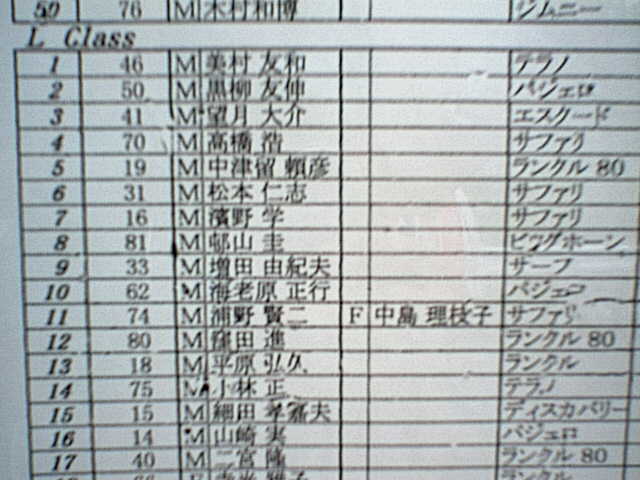 50 76 M 木村和博 ジムニー
L Class
1 46 M 美村 友和 テラノ
2 50 M 黒柳 友伸 パジェロ
3 41 M 望月 大介 エスクード
4 70 M 高橋 浩 サファリ
5 19 M 中津留 頼彦 ランクル 80
6 31 M 松本 仁志 サファリ
7 16 M 濱野 学 サファリ
8 81 M 邨山 圭 ビッグホーン
9 33 M 増田 由紀夫 サーフ
10 62 M 海老原 正行 パジェロ
11 74 M 浦野 賢二 F 中島 理枝子 サファリ
12 80 M 窪田 進 ランクル 80
13 18 M 平原 弘久 ランクル
14 75 M 小林 正 テラノ
15 15 M 細田 孝嘉夫 ディスカバリー
16 14 M 山崎 実 パジェロ
17 40 M 二宮 隆 ランクル 80